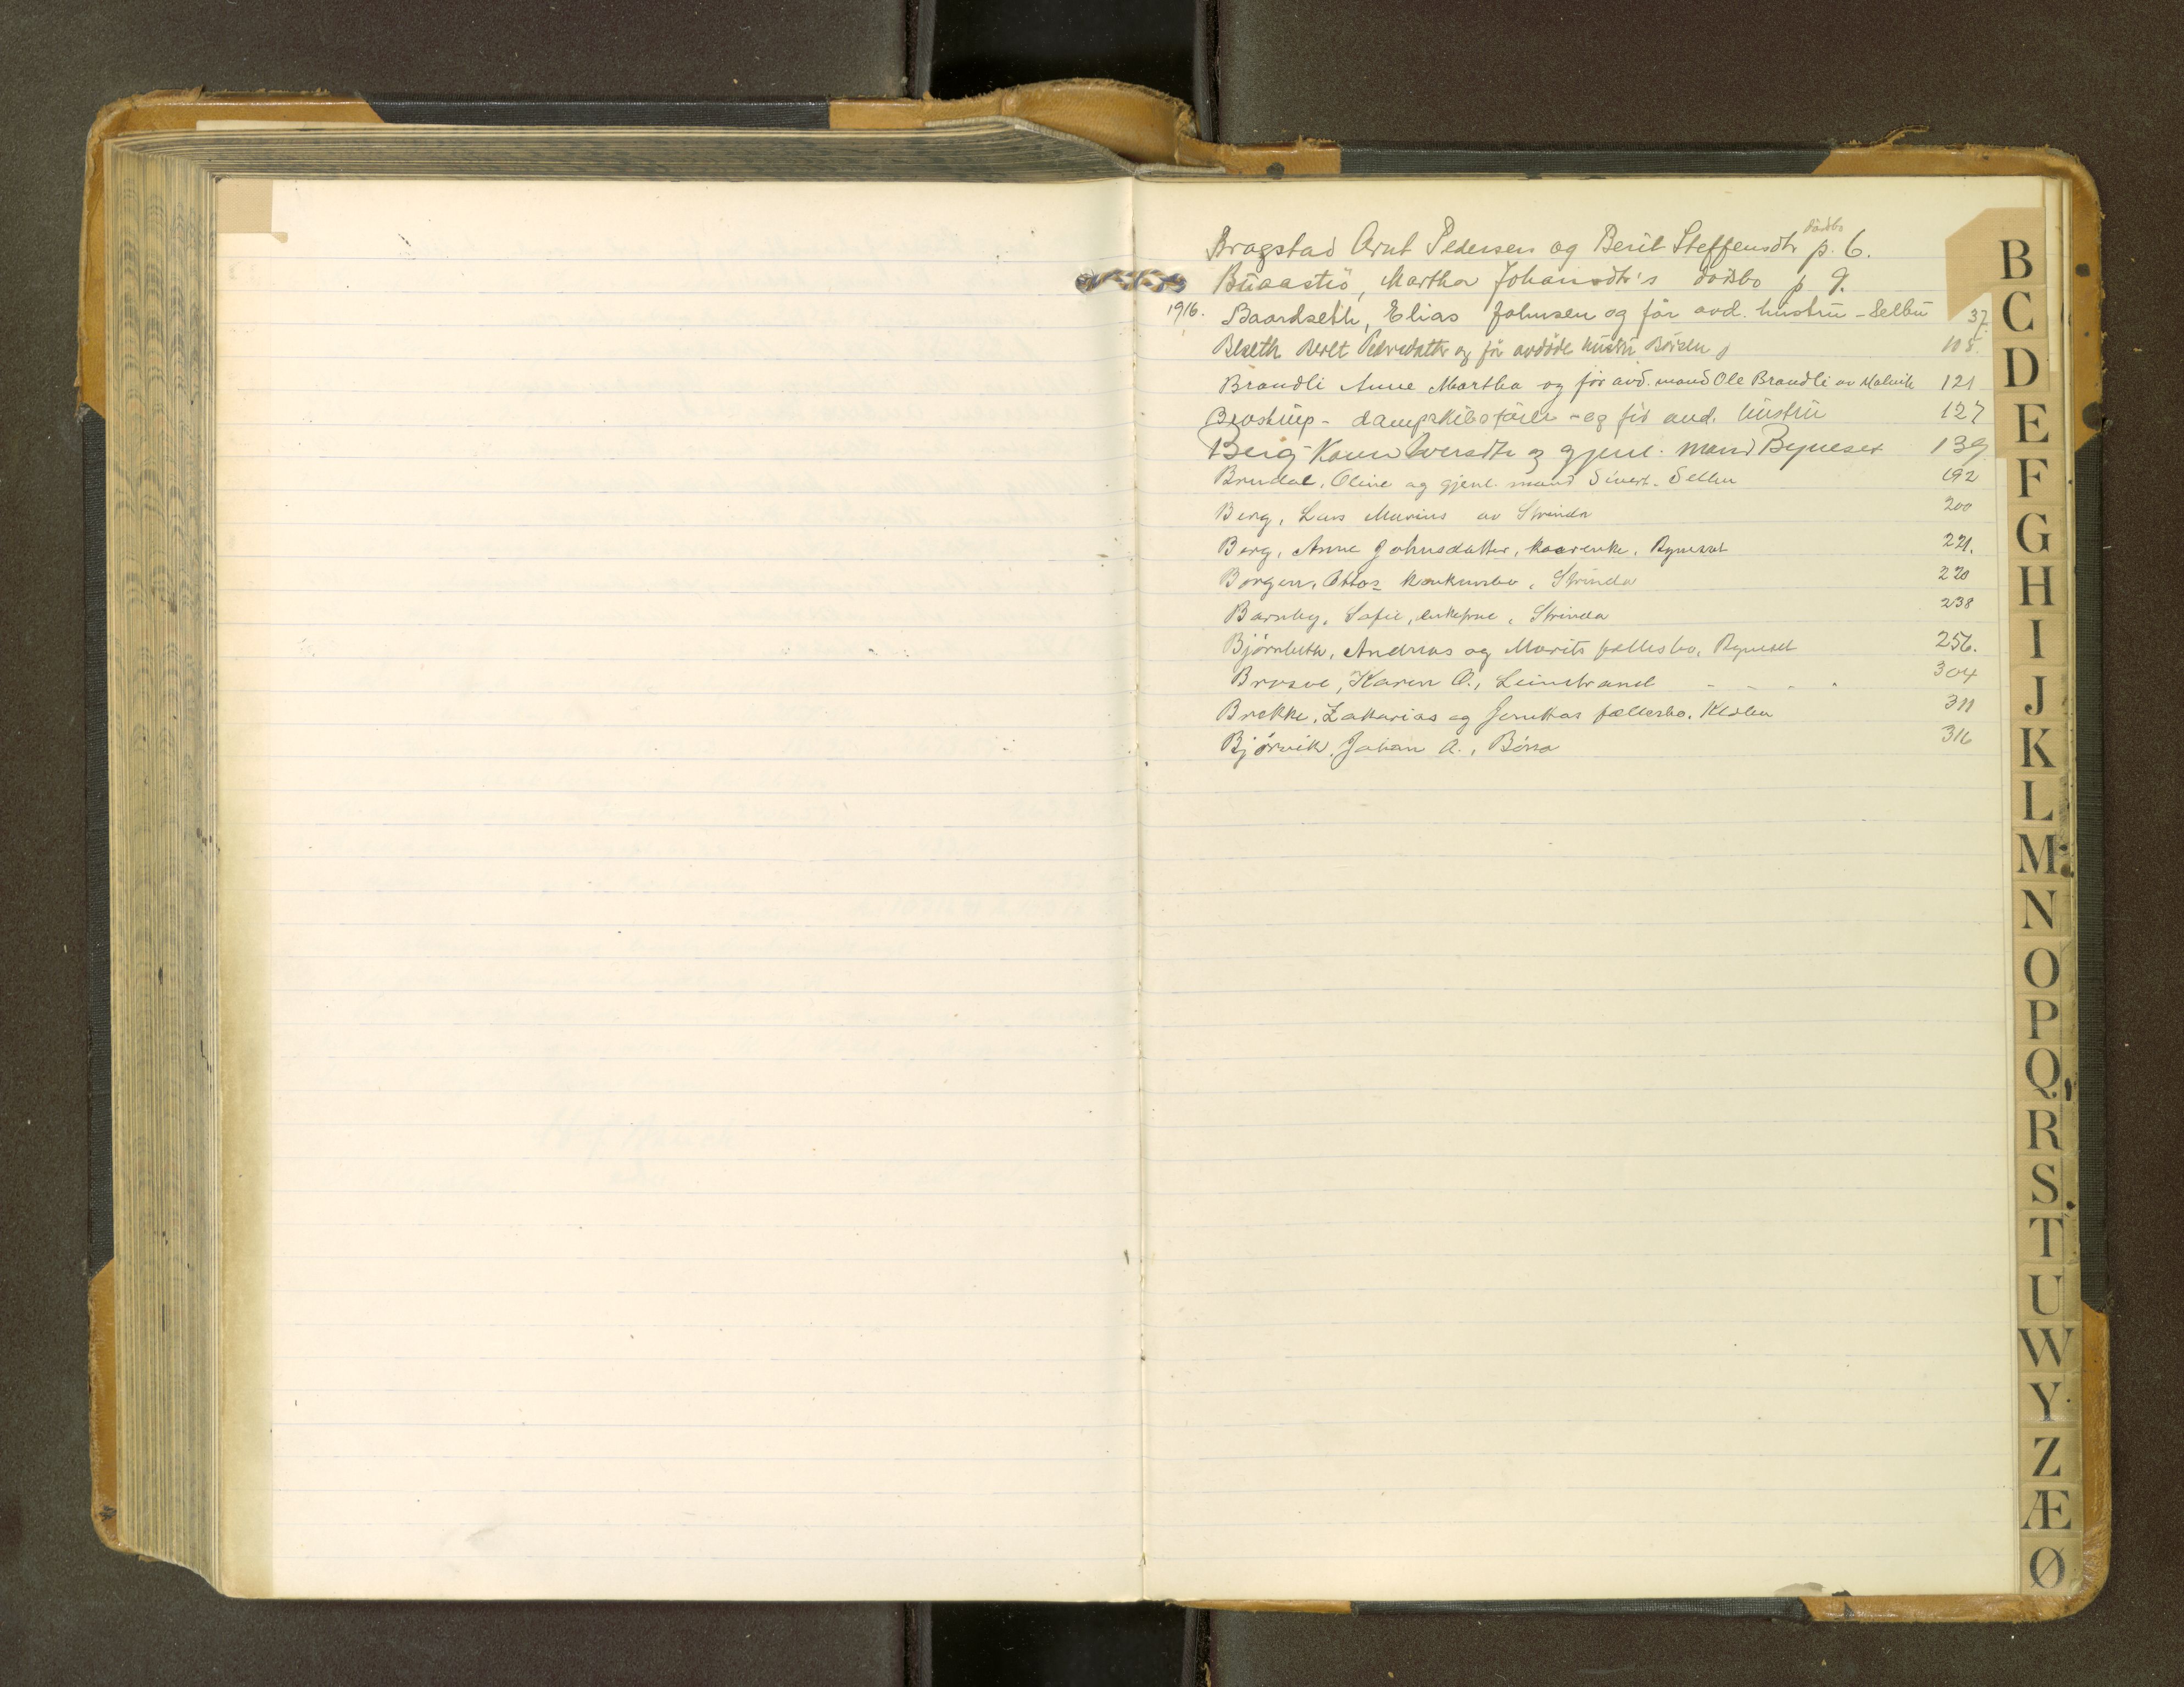 Bragstad Arnt Pedersen og Berit Steffensdtr dødsbo p. 6.
Buaastrø, Martha Johansdtr's dødsbo p 9.
1916. Baardseth, Elias Johnsen og før avd. hustru - Selbu 37.
Bleseth Beret Pedersdatter og før avdøde Børseth 108.
Brandli Anne Martha og før avd. mand Ole Brandli av Malvik 121
Brostrup - dampskibsfører - og før avd. hustru 127
Berg Karen Iversdtr og gjenl. mand Byneset 139
Brudal, Oline og gjenl. mand Sivert. Selbu 192
Berg, Lars Marius av Strinda 200
Berg, Anne Johnsdatter, kaarenke, Byneset 221.
Borgen, Ottos konkursbo, Strinda 220
Barnby, Sofie, enkefrue, Strinda 238
Bjørnbeth, Andreas og Marits fellesbo, Byneset 256.
Brøsve, Karen O., Leinstrand - - - - 304
Brekke, Zakarias og Jonettas fællesbo, Klæbu 311
Bjørvik Johan A., Børsa 316
B
C
D
E
F
G
H
I
J
K
L
M
N
O
P
Q
R
S
T
U
W
Y
Z
Æ
Ø